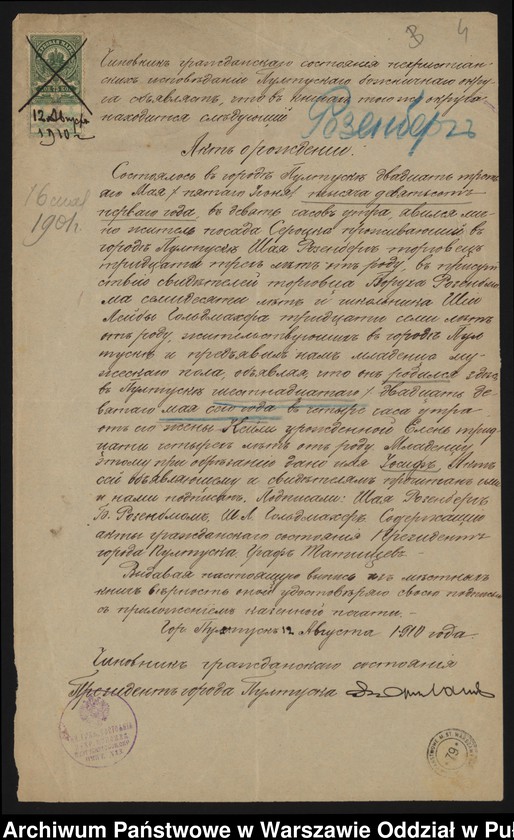 3 4
12 Августа
1910 г.
Чиновникъ гражданскаго состоянія нехристіан-
скихъ исповѣданій Пултускаго божничнаго окру-
га объявляетъ, что въ книгахъ того округа
находится слѣдующій
Розенбергъ
Актъ о рожденіи.
16 мая
1901 г.
Состоялось въ городѣ Пултускѣ двадцать треть-
яго Мая / пятаго Іюня / тысяча девятьсотъ
перваго года, въ девять часовъ утра, явился лич-
но житель посада Сероцка проживающій въ
городѣ Пултускѣ Шая Розенбергъ торговецъ
тридцати трехъ лѣтъ отъ роду, въ присут-
ствіи свидѣтелей торговца Боруха
ма семидесяти лѣтъ и школьника Шли
Лейбы Гольдмахера тридцати семи лѣтъ
отъ роду, жительствующихъ въ городѣ Пул-
тускѣ и предъявилъ намъ младенца му-
жескаго пола, объявляя, что онъ родился здѣсь
въ Пултускѣ шестнадцатаго / двадцать де-
вятаго мая сего года въ четыре часа утра
отъ его жены урожденной тридц-
цати четырехъ лѣтъ отъ роду. Младенцу
этому при обрѣзаніи дано имя Іосифъ. Актъ
сей объявляющему и свидѣтелямъ прочитанъ ими
и нами подписанъ. Подписали: Шая Розенбергъ
Б. Ш. Л. Гольдмахеръ, Содержащій
акты гражданскаго состоянія Президентъ
города Пултуска Графъ Татищевъ
Выдавая настоящую выпись изъ мѣстныхъ
книгъ вѣрность оной удостовѣряю своею подписью
съ приложеніемъ казенной печати.
Гор. Пултускъ 12 Августа 1910 года.
Чиновникъ гражданскаго состоянія
Президентъ города Пултуска
79
Archiwum Państwowe w Warszawie Oddział w Pu